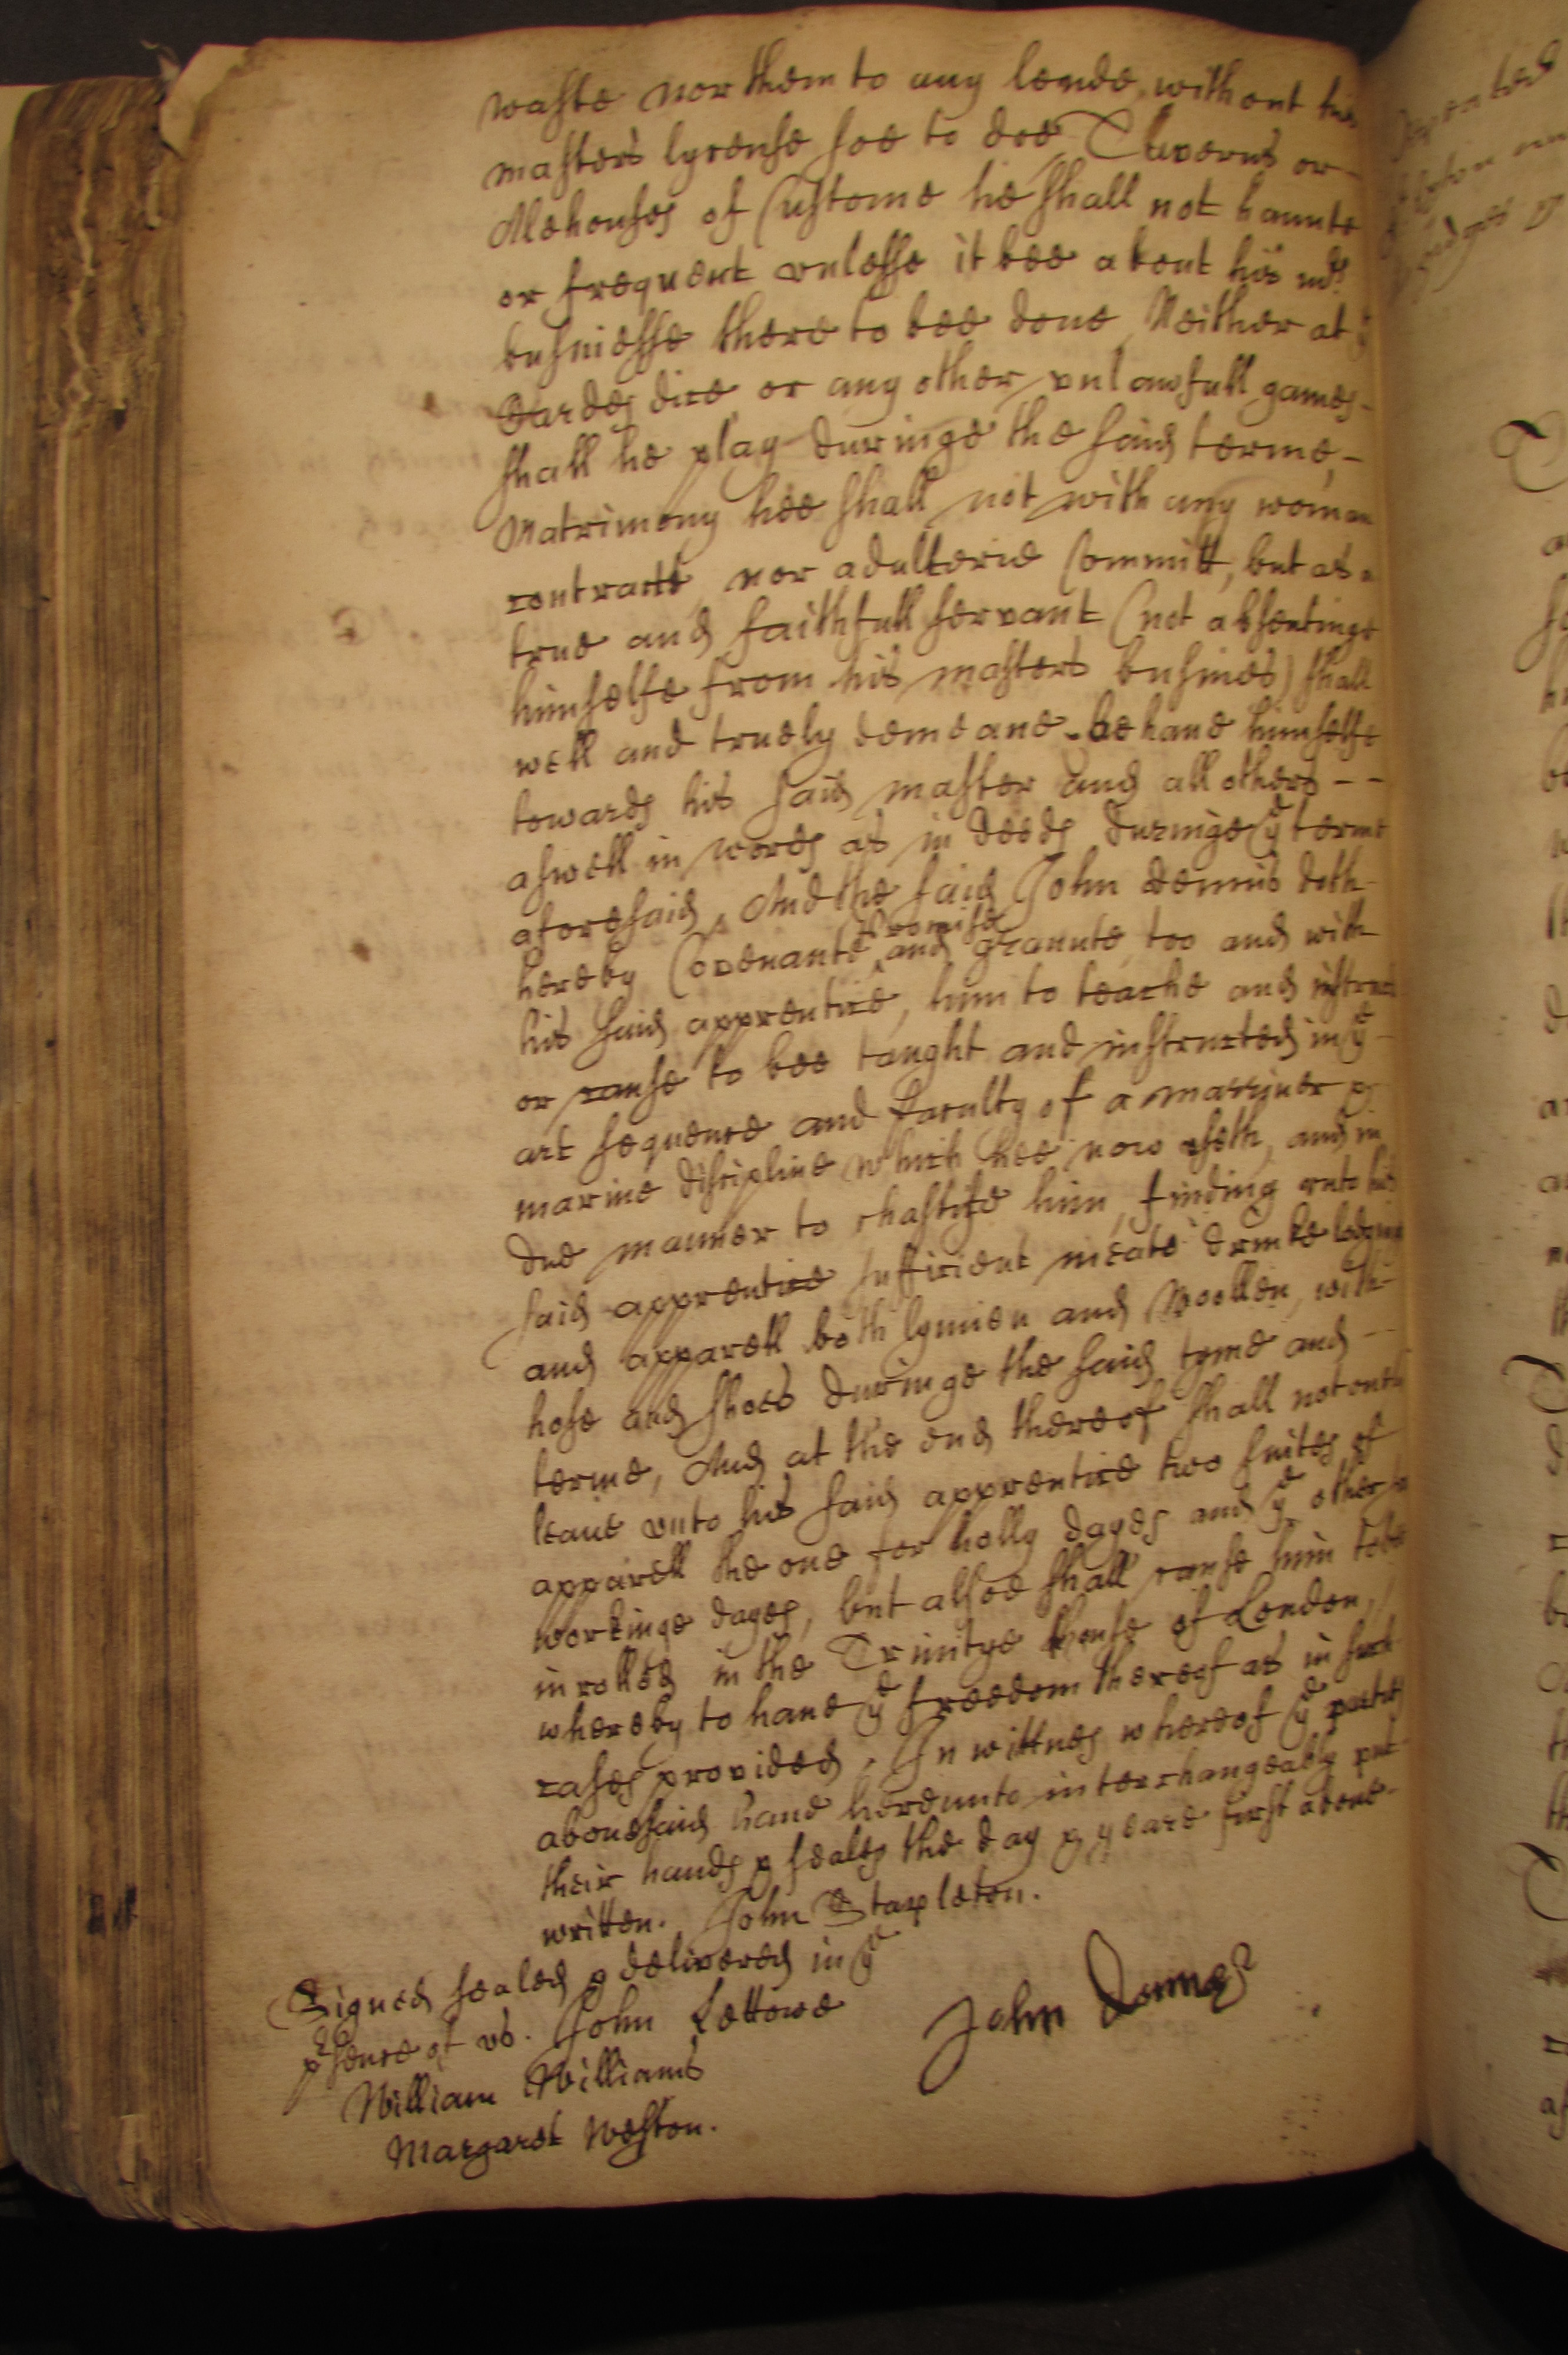 waste nor them to any lende, without his
masters lycense soe to doe, Taverns or
Alehouses of Custome he shall not haunte
or frequent vnlesse it bee about his mrs
busniesse there to bee done, Neither at ye
Cardes dice or any other vnlawfull games
shall he play duringe the said terme,
Matrimony hee shall not with any woman
contracte, nor adulterie Committ, but as a
true and faithfull servant (not absentinge
himselfe from his masters busines) shall
well and truely demeane behaue himselfe
towards his said master and all others
aswell in words as in deeds duringe ye terme
aforesaid, And the said John dennis doth
promise
hereby Covenante and graunte, too and with
his said apprentice, him to teache and instruct
or cause to bee taught and instructed in ye
art sequence and Faculty of a marriner &
marine discipline which hee now vseth, and in
due manner to chastise him, finding vnto his
said apprentice sufficient meate drinke lodging
and apparell both lynnen and woollen, with
hose and shoes duringe the said tyme and
terme, And at the end thereof shall not only
leaue vnto his said apprentice two suites of
apparell the one for holly dayes and ye other for
workinge dayes, but alsoe shall cause him to be
inrolled in the Trinitye house of London,
whereby to haue ye freedom thereof as in such
cases provided. In wittnes whereof ye parties
abouesaid haue hereunto interchangeably put
their hands & seales the day & yeare first aboue
written. John Stapleton.
Signed sealed & delivered in ye
psence of vs. John Lettowe
John Dennes
William Williams
Margaret Weston.